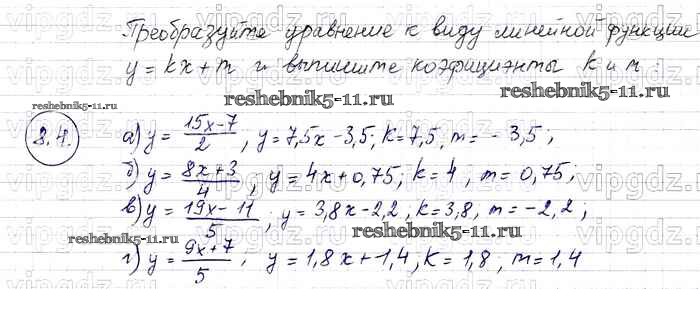 Преобразуйте уравнение к виду линейной функции
y = kx + m и выпишите коэфициенты k и m:
reshebnik5-11.ru reshebnik5-11.ru
8.4. а) y = \frac{15x-7}{2}, y = 7,5x - 3,5; k = 7,5, m = - 3,5;
б) y = \frac{8x+3}{4}, y = 4x + 0,75; k = 4, m = 0,75;
в) y = \frac{19x-11}{5}, y = 3,8x - 2,2, k = 3,8, m = -2,2;
reshebnik5-11.ru reshebnik5-11.ru
г) y = \frac{9x+7}{5}, y = 1,8x + 1,4, k = 1,8, m = 1,4